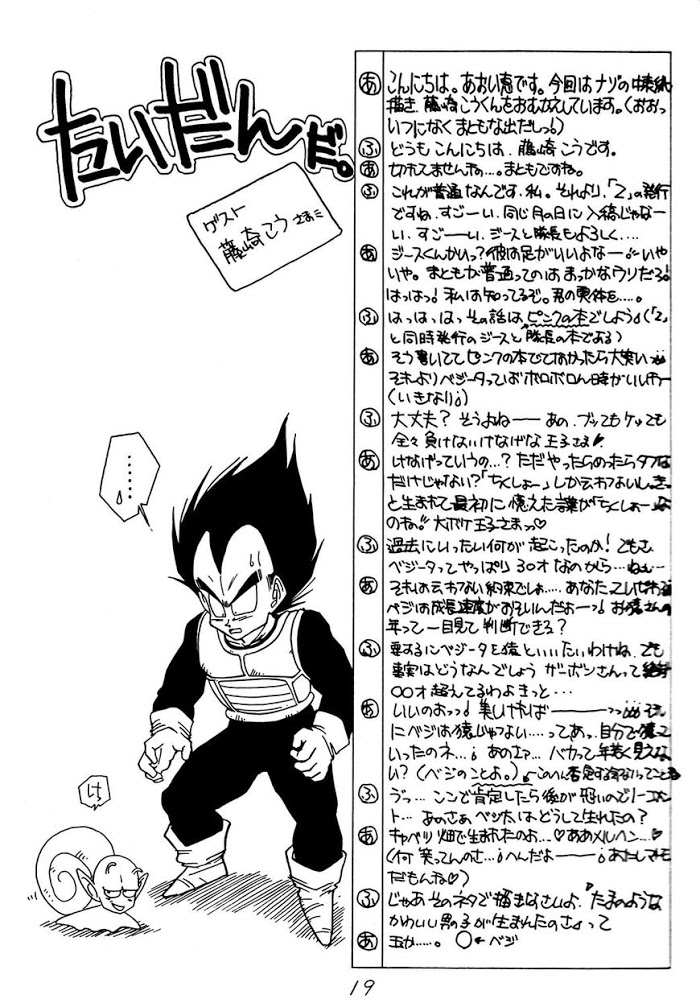 たいだんだ。
ゲスト
藤崎こうさま
あ こんにちは。あおい恵です。今回はナゾの中表紙
描き、藤崎こうくんをおむかえしています。(おおっ
いつになくまともな出だしっ!)
ふ どうもこんにちは、藤崎こうです。
あ 切れてませんねぇ…。まともですね。
ふ これが普通なんです、私。それより、「Z」の発行
ですね、すごーい、同じ月の日に入稿じゃなー
い、すごーーい、ジースと隊長もよろしく…
あ ジースくんかいっ?彼は足がいいよなー いや
いや。まともが普通ってのはまっかなウソだろ!
はっはっ!私は知ってるぞ。君の実体を…。
ふ はっはっはっその話はピンクの本でしよう(「Z」
と同時発行のジースと隊長の本である)
あ そう書いててピンクの本でてなかったら大笑い
それよりベジータってばボロボロん時がいいわー
(いきなり)
ふ 大丈夫?そうよねーー あの、ブッてもケッても
全々負けないけなげな王子さま
あ けなげっていうの…?ただやったらめったらタフな
だけじゃない?「ちくしょー」しか云わないし、きっ
と生まれて最初に憶えた言葉が「ちくしょー」な
のね!!大ボケ王子さまっ♡
ふ 過去にいったい何が起こったのか!でもさ
ベジータってやっぱり30才なのかしら…ねぇ…
あ それは云わない約束でしょ…あなた
ベジは成長速度がおそいんだよーっ!お猿さんの
年って一目見て判断できる?
ふ 要するにベジータを猿といいたいわけね、でも
事実はどうなんでしょう ザーボンさんって絶対
〇〇才超えてるわよきっと…
あ いいのおっっ!美しければーーーっ
にベジは猿じゃない…ってあっ、自分で猿って
いったのネ… あのさァ…バカって年若く見えな
い?(ベジのことよ。)
ふ うっ…ここで肯定したら後が恐いのでノーコメン
ト…あのさぁベジ太はどうして生まれたの?
あ キャベツ畑で生まれたのよ…♡ああメルヘン…♡
(何笑ってんのさ…へんだよーー
だもんね♡)
ふ じゃあそのネタで描きなさいよ、“たまのような
かわいい男の子が生まれたのさ”って
あ 玉か……。〇←ベジ
……
け
19